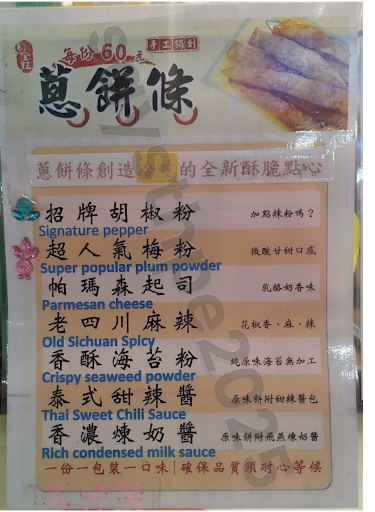 每份60元
手工獨創
蔥餅條
蔥餅條創造冷吃的全新酥脆點心
招牌胡椒粉 加點辣粉嗎？
Signature pepper
超人氣梅粉 微酸甘甜口感
Super popular plum powder
帕瑪森起司 乳酪奶香味
Parmesan cheese
老四川麻辣 花椒香、麻、辣
Old Sichuan Spicy
香酥海苔粉 純原味海苔無加工
Crispy seaweed powder
泰式甜辣醬 原味餅附甜辣醬包
Thai Sweet Chili Sauce
香濃煉奶醬 原味餅附飛燕煉奶醬
Rich condensed milk sauce
一份一包裝一口味|確保品質須耐心等候